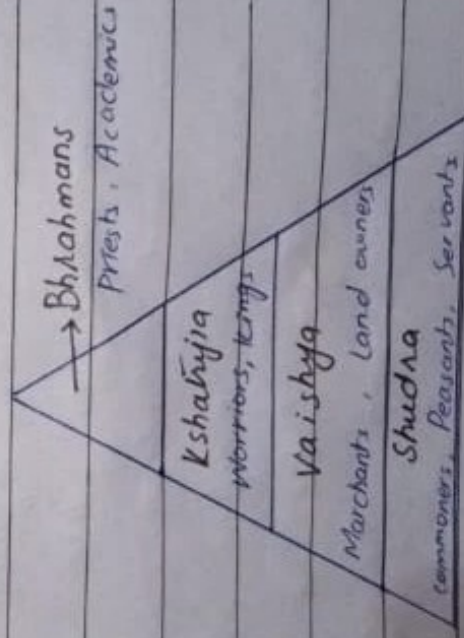 Bhrahmans
Priests, Academics
Kshatryia
Worriors, Kings
Vaishya
Marchants, Land owners
Shudra
Commoners, Peasants, Servants